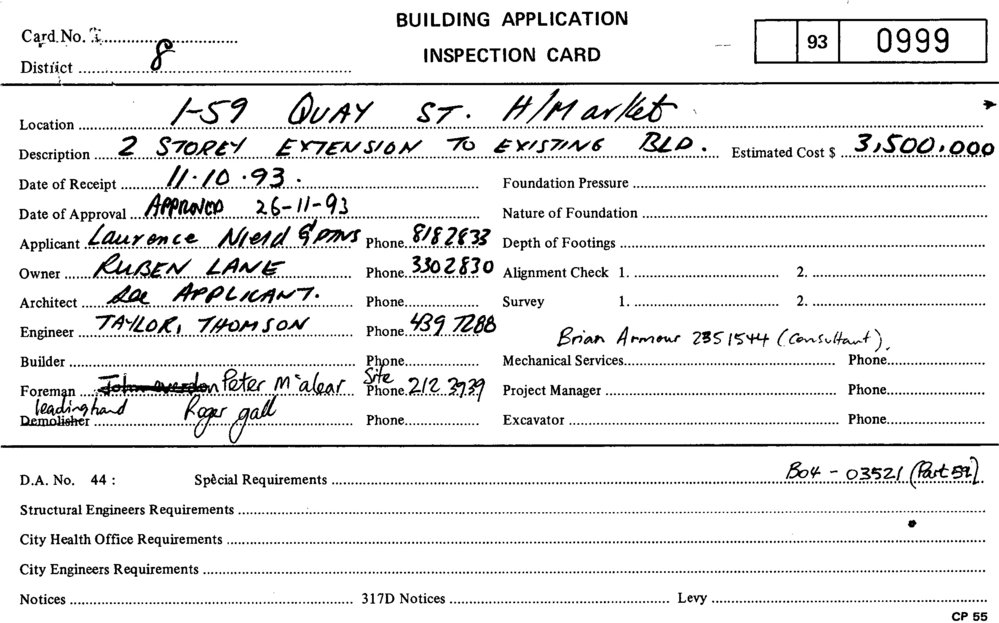 BUILDING APPLICATION
INSPECTION CARD
Card No.
District 8
93 0999
Location 1-59 QUAY ST. H/Market
Description 2 STOREY EXTENSION TO EXISTING BLD. Estimated Cost $ 3,500,000
Date of Receipt 11.10.93. Foundation Pressure
Date of Approval APPROVED 26-11-93 Nature of Foundation
Applicant Laurence Nield & Ptns Phone 8182833 Depth of Footings
Owner RUBEN LANE Phone 3302830 Alignment Check 1. 2.
Architect See APPLICANT. Phone Survey 1. 2.
Engineer TAYLOR, THOMSON Phone 439 7288
Brian Armour 2351544 (Consultant).
Builder Phone Mechanical Services Phone
Foreman Peter McAlear Site Phone 212 3939 Project Manager Phone
leading hand Roger gall
Demolisher Phone Excavator Phone
D.A. No. 44 : Special Requirements B04 - 03521 (Part 59).
Structural Engineers Requirements
City Health Office Requirements
City Engineers Requirements
Notices 317D Notices Levy
CP 55